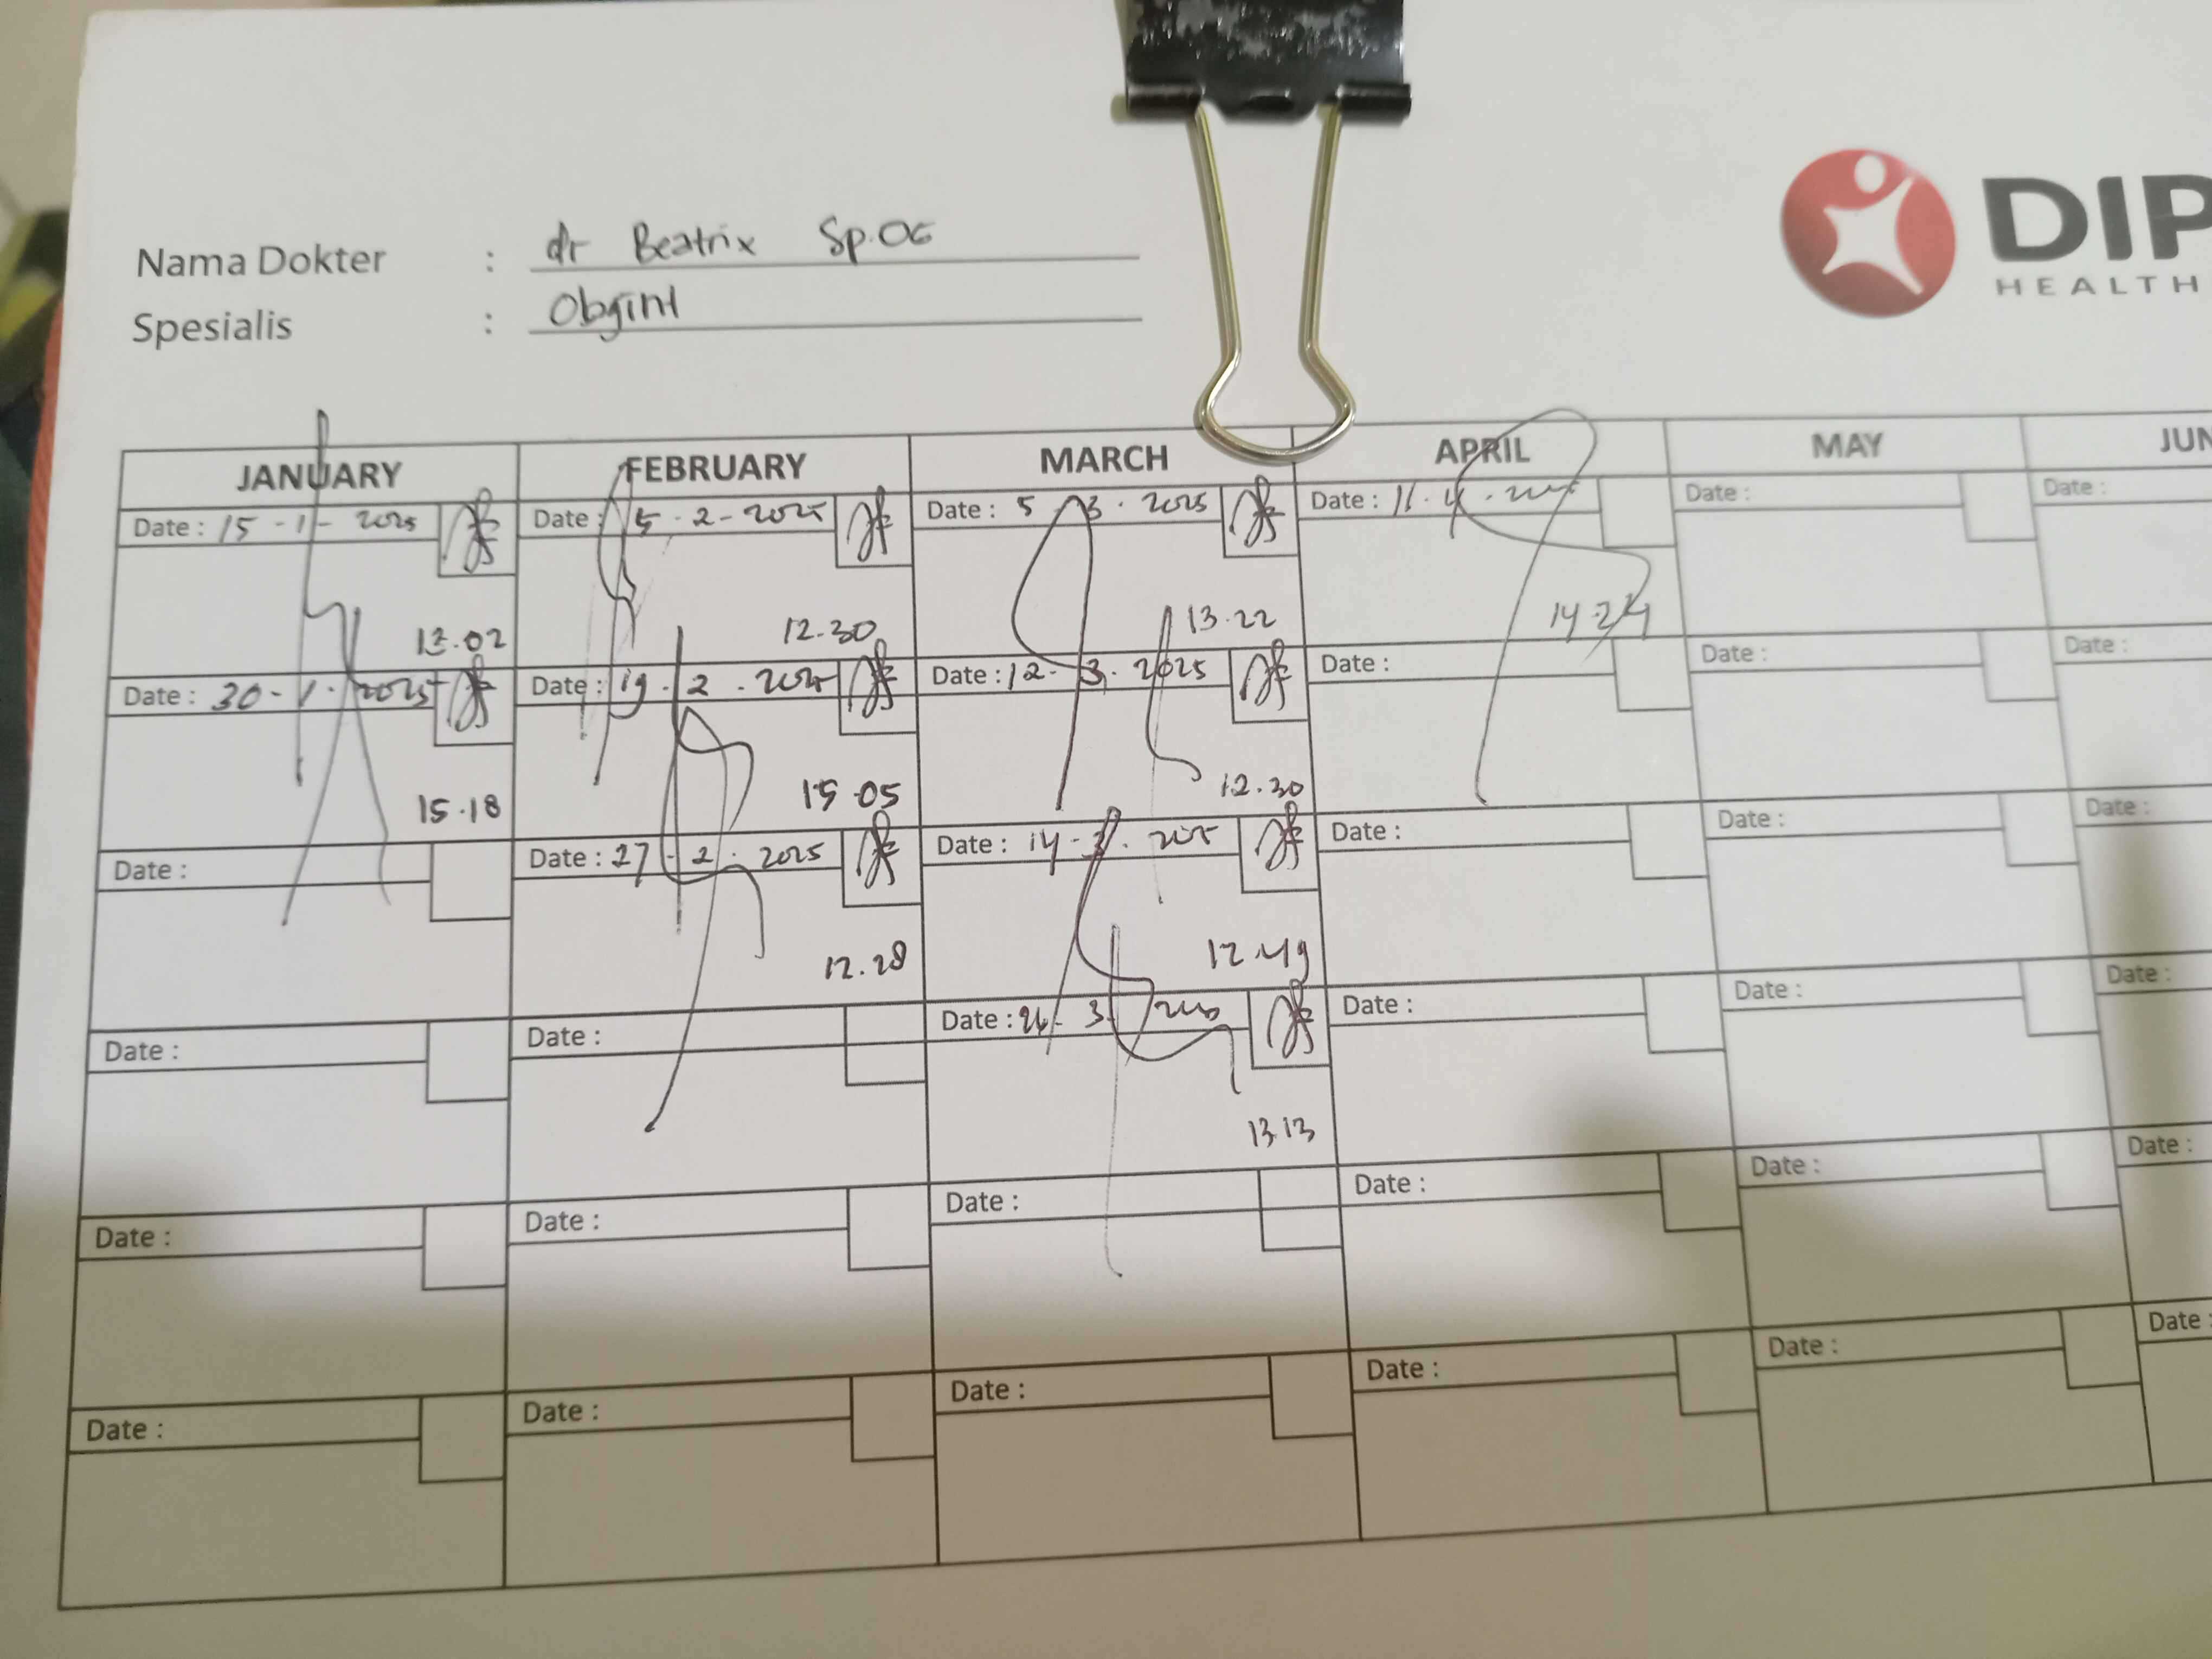 Nama Dokter : dr Beatrix Sp.OG
Spesialis : Obgin
DIP
HEALTH
JANUARY FEBRUARY MARCH APRIL MAY JUN
Date : 15 - 1 - 2025 Date : 5 - 2 - 2025 Date : 5 . 3 . 2025 Date : 11 . 4 . Date : Date :
13.02 12.30 13.22 14 24
Date : 30 - 1 . 2025 Date : 19 . 2 . 2025 Date : 12 - 3 . 2025 Date : Date : Date :
15.18 15 05 12.30
Date : Date : 27 - 2 . 2025 Date : 14 - 3 . 2025 Date : Date : Date :
12.28 12.49
Date : Date : Date : 3 Date : Date : Date :
13 13
Date : Date : Date : Date : Date : Date :
Date : Date : Date : Date : Date : Date :